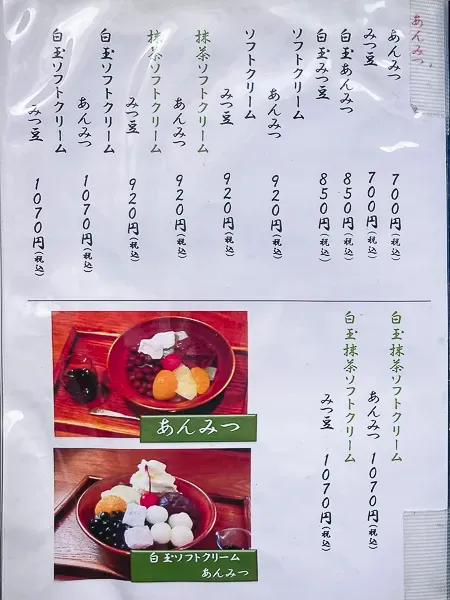 あんみつ
あんみつ 700円(税込)
みつ豆 700円(税込)
白玉あんみつ 850円(税込)
白玉みつ豆 850円(税込)
ソフトクリーム
あんみつ 920円(税込)
ソフトクリーム
みつ豆 920円(税込)
抹茶ソフトクリーム
あんみつ 920円(税込)
抹茶ソフトクリーム
みつ豆 920円(税込)
白玉ソフトクリーム
あんみつ 1070円(税込)
白玉ソフトクリーム
みつ豆 1070円(税込)
白玉抹茶ソフトクリーム
あんみつ 1070円(税込)
白玉抹茶ソフトクリーム
みつ豆 1070円(税込)
あんみつ
白玉ソフトクリーム
あんみつ